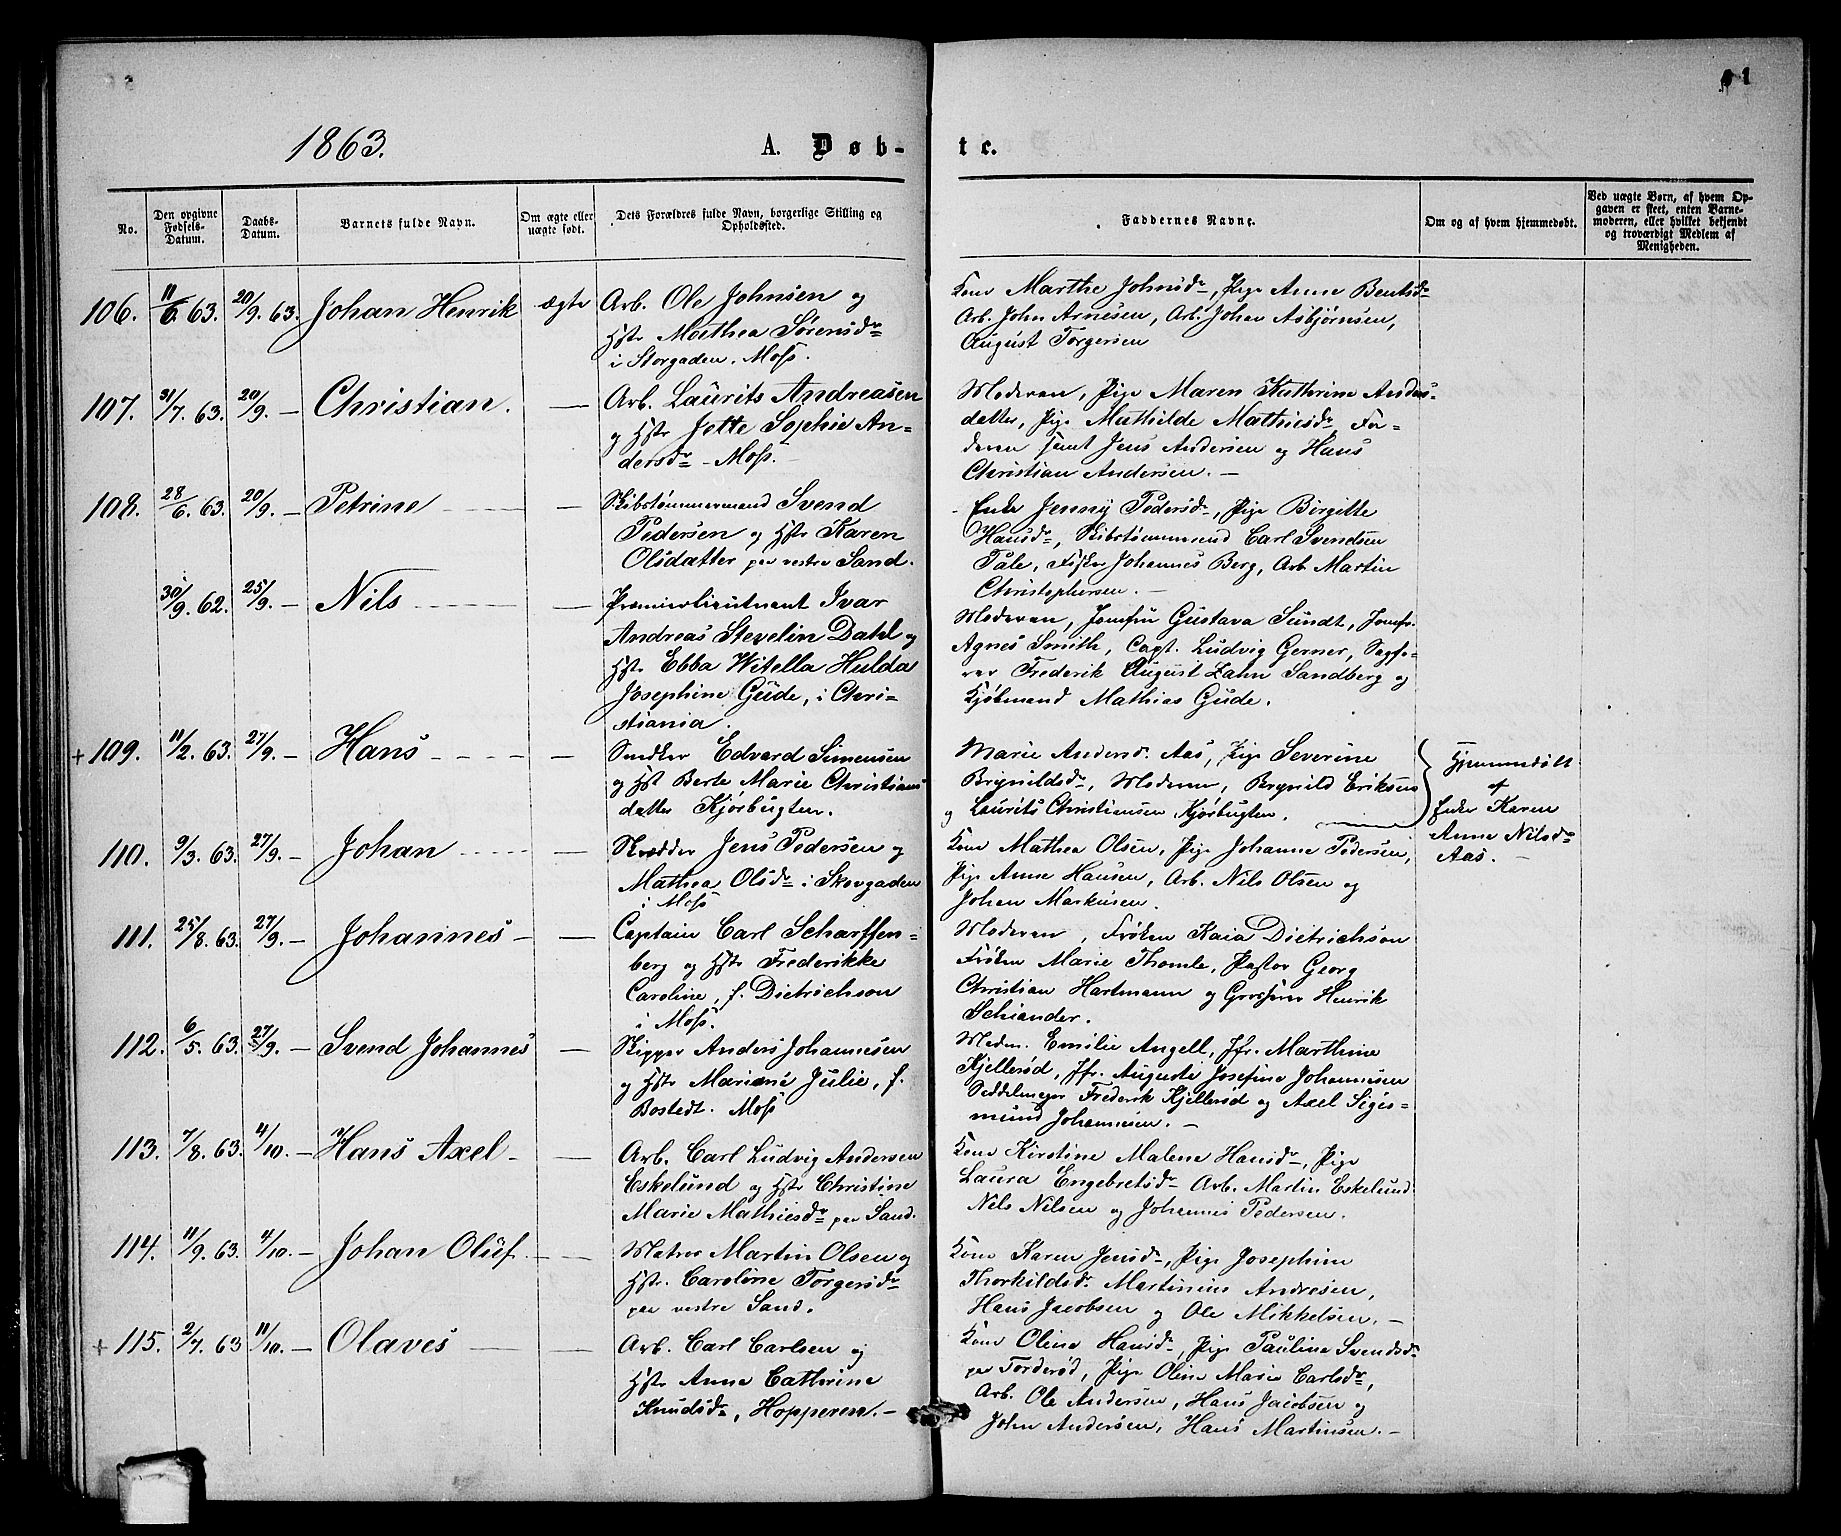 1863.
A. Døb-
te.
No.
Den opgivne Fødsels-Datum.
Daabs-Datum.
Barnets fulde Navn.
Om ægte eller uægte født.
Dets Forældres fulde Navn, borgerlige Stilling og Opholdssted.
Faddernes Navne.
Om og af hvem hjemmedøbt.
Ved uægte Børn, af hvem Op-
gaven er skeet, enten Barne-
moderen, eller hvilket bekjendt
og troværdigt Medlem af
Menigheden.
106. 11/6. 63. 20/9. 63. Johan Henrik ægte
Arb. Ole Johnsen og
Hstr Mathea Sørensdr
i Storgaden. Moss.
Kone Marthe Johnsdr, Pige Anne Bentsdr
Arb. John Arnesen, Arb. Johan Asbjørnsen,
August Torgersen
107. 31/7. 63. 20/9. — Christian. —
Arb. Laurits Andreasen
og Hstr Jotte Sophie An=
dersdr - Moss.
Moderen, Pige Maren Kathrine Anders-
datter, Pige Mathilde Mathisdr, Fa-
deren samt Jens Andersen og Hans
Christian Andersen. —
108. 28/6. 63. 20/9. — Petrine —
Skibstømmermand Svend
Pedersen og Hstr Karen
Olsdatter paa vestre Sand.
Enke Jenny Pedersdr, Pige Birgitte
Hansdr, Skibstømmermd Carl Svendsen
Tale, Fisker Johannes Berg, Arb. Martin
Christophersen. —
30/9. 62. 25/9. — Nils —
Premierlieutnant Ivar
Andreas Stevelin Dahl og
Hstr Ebba Witella Hulda
Josephine Gude, i Chri-
stiania.
Moderen, Jomfru Gustava Sundt, Jomfr.
Agnes Smith, Capt. Ludvig Gerner, Sagfø-
rer Frederik August Zahn Sandberg og
Kjøbmand Mathias Gude.
+ 109. 11/2. 63. 27/9. — Hans —
Snedker Edvard Simensen
og Hst Berte Marie Christians
datter Kjørbugten.
Marie Andersd. Aas, Pige Severine
Brynildsdr, Moderen, Brynild Eriksen
og Laurits Christiansen Kjørbugten.
Hjemmedøbt
af
Enke Karen
Anne Nilsdr
Aas. —
110. 9/3. 63. 27/9. — Johan —
Skrædder Jens Pedersen og
Mathea Olsdr i Skovgaden
i Moss
Kone Mathea Olsen, Pige Johanne Pedersen,
Pige Anne Hansen, Arb. Nils Olsen og
Johan Markusen.
111. 25/8. 63. 27/9. — Johannes — —
Captain Carl Scharffen-
berg og Hstr Frederikke
Caroline, f. Dietrichson
i Moss.
Moderen, Frøken Kaia Dietrichson
Frøken Marie Thomle, Pastor Georg
Christian Hartmann og Grosserer Henrik
Schiander.
112. 6/5. 63. 27/9. — Svend Johannes —
Skipper Anders Johannesen
og Hstr Mariane Julie, f.
Bostedt. Moss
Moden. Emilie Angell, Jfr. Marthine
Kjellerød, Jfr. Auguste Josefine Johannesen
Seddelmeger Frederik Kjellerød og Axel Sigis=
mund Johannesen. —
113. 7/8. 63. 4/10. — Hans Axel — —
Arb. Carl Ludvig Andersen
Eskelund og Hstr Christine
Marie Mathiesdr paa Sand.
Kone Kirstine Malene Hansdr, Pige
Laura Engebretsdr Arb. Martin Eskelund
Nils Nilsen og Johannes Pedersen.
114. 11/9. 63. 4/10. — Johan Oluf. — —
Matros Martin Olsen og
Hstr. Caroline Torgersdr
paa vestre Sand.
Kone Karen Jensdr, Pige Josephine
Thorkildsdr. Martinius Andresen,
Hans Jacobsen og Ole Mikkelsen. —
+ 115. 2/7. 63 11/10. — Olaves — —
Arb. Carl Carlsen og
Hstr Anne Cathrine
Knudsdr, Hopperen. —
Kone Oline Hansdr, Pige Pauline Svendsdr
paa Torderød, Pige Oline Marie Carlsdr,
Arb. Ole Andersen, Hans Jacobsen og
John Andersen, Hans Martinsen. —